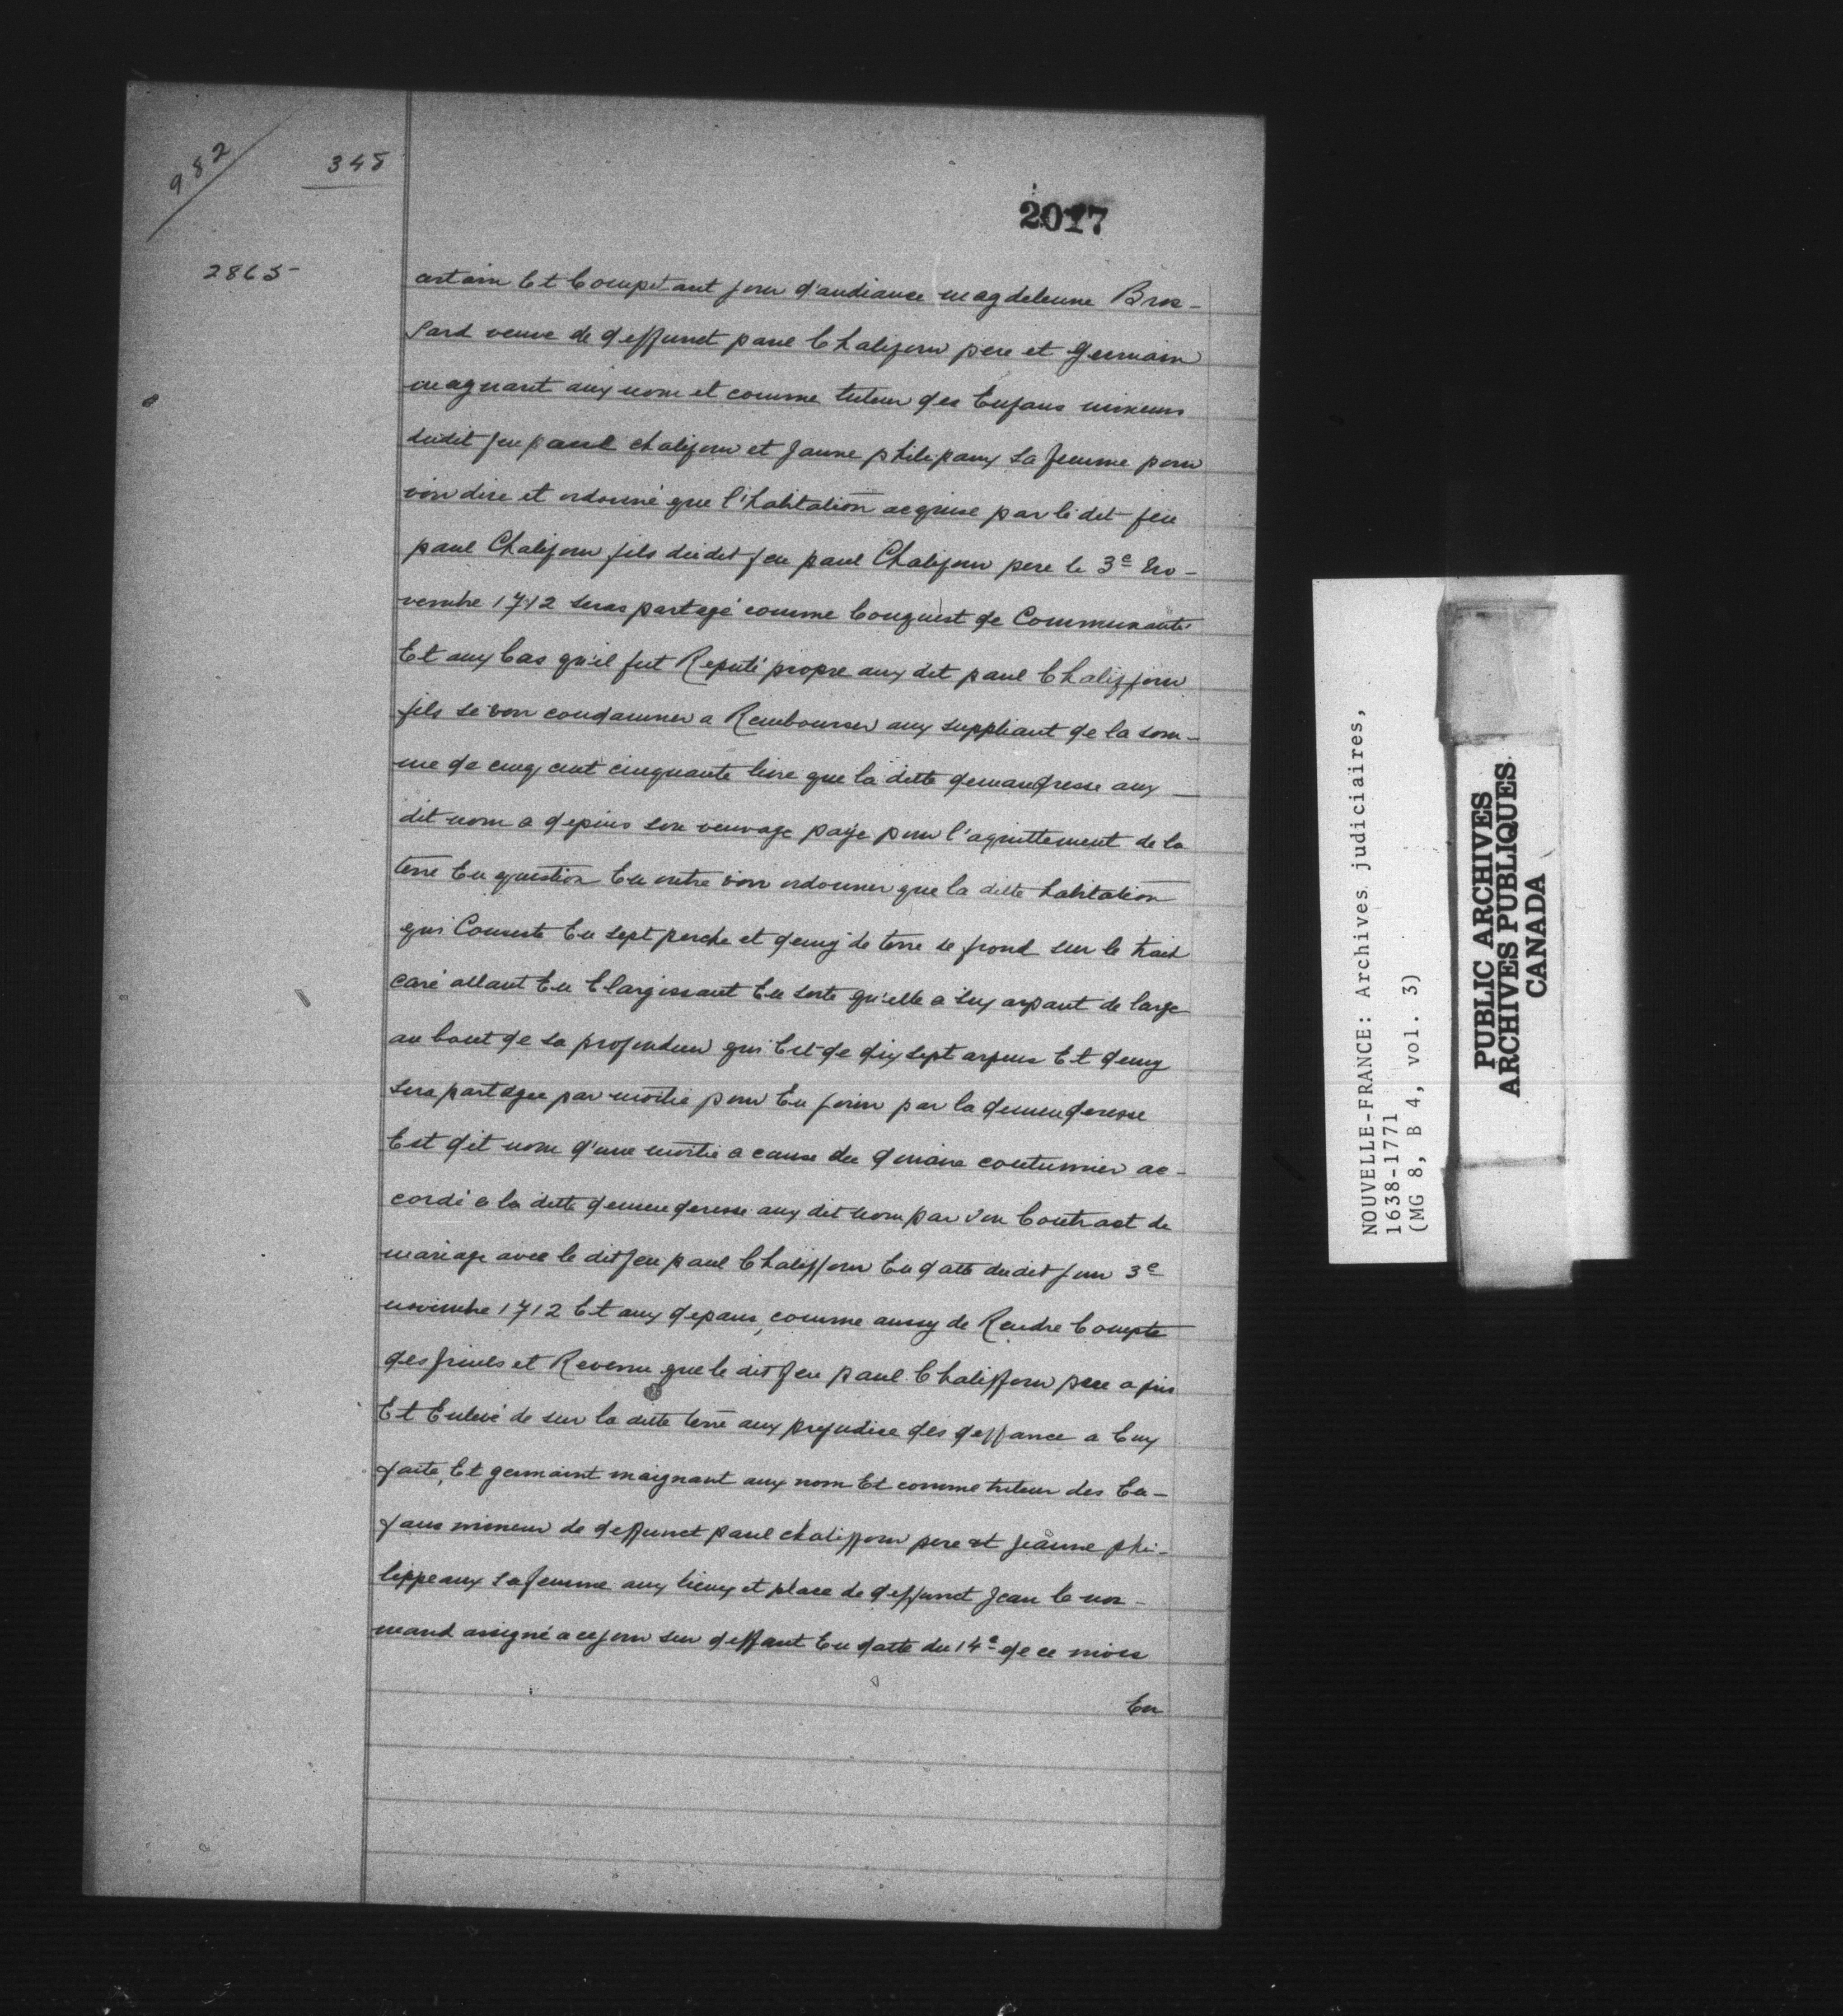 982
345
2017
2865
certain Et Competant jour d'audiance magdeleinne Bros-
sard veuve de deffunct paul Chalifour pere et Germain
magnant aux nom et comme tuteur des Enfans mineurs
dudit feu paul chalifour et Janne philipaux sa femme pour
voir dire et ordonné que l'habitation acquise par le dit feu
paul Chalifour fils dudit feu paul Chalifour pere le 3e No-
vembre 1712 seras partagé comme Conquest de Communauté
Et aux Cas qu'il fut Reputé propre aux dit paul Chaliffour
fils se voir condamner a Rembourser aux suppliant de la som-
me de cinq cent cinquante livre que la ditte demandresse aux
dit nom a depuis son veuvage payé pour l'aquittement de la
terre En question En outre voir ordonner que la ditte habitation
qui Consiste En sept perche et demy de terre de frond sur le trait
caré allant En Elargissant En sorte qu'elle a six arpant de large
au bout de sa profondeur qui Est de dix sept arpens Et demy
sera partagée par moitié pour En jouir par la demenderesse
Est dit nom d'une moitié a cause du douaire coutumier ac-
cordé a la ditte demenderesse aux dit nom par son Contract de
mariage avec le dit feu paul Chaliffour En datte dudit jour 3e
novembre 1712 Et aux depans, comme aussy de Rendre Compte
des fruits et Revenu que le dit feu paul Chaliffour pere a pris
Et Enlevé de sur la ditte terre aux prejudice des deffance a Eux
faite, Et germaint maignant aux nom Et comme tuteur des En-
fans mineur de deffunct paul chaliffour pere et jeanne phi-
lippeaux sa femme aux lieux et place de deffunct Jean le nor-
mand assigné a ce jour sur deffaut En datte du 14e de ce mois
En
NOUVELLE-FRANCE: Archives judiciaires,
1638-1771
(MG 8, B 4, vol. 3)
PUBLIC ARCHIVES
ARCHIVES PUBLIQUES
CANADA